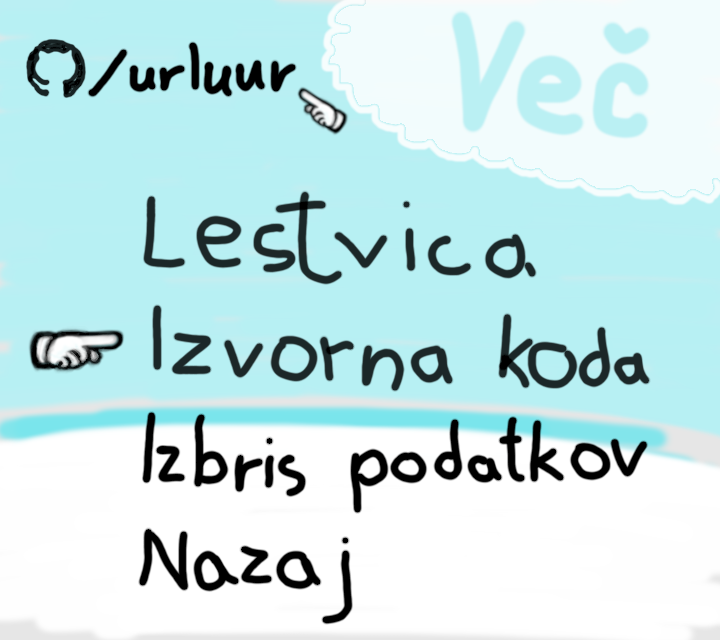 /urluur
Več
Lestvica
Izvorna koda
Izbris podatkov
Nazaj